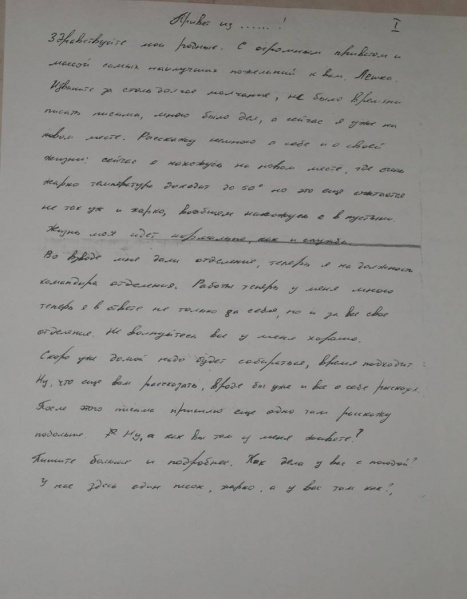 Привет из ......! I
Здравствуйте мои родные. С огромным приветом и
массой самых наилучших пожеланий к вам, Лёшка.
Извините за столь долгое молчание, не было времени
писать письма, много было дел, а сейчас я уже на
новом месте. Расскажу немного о себе и о своей
жизни: сейчас я нахожусь на новом месте, где очень
жарко температура доходит до 50° но это еще считается
не так уж и жарко, вообщем нахожусь я в пустыни.
Жизнь моя идет нормально, как и служба.
Во взводе мне дали отделение, теперь я на должности
командира отделения. Работы теперь у меня много
теперь я в ответе не только за себя, но и за все свое
отделение. Не волнуйтесь все у меня хорошо.
Скоро уже домой надо будет собираться, время подходит.
Ну, что еще вам рассказать, вроде бы уже и все о себе
После этого письма пришлю еще одно там расскажу
подольше Ну, а как вы там у меня живете?
Пишите больше и подробнее. Как дела у вас с погодой?
У нас здесь один песок, жарко, а у вас там как?,